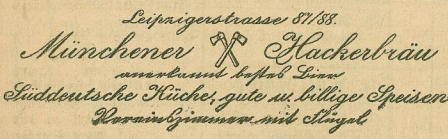 Leipzigerstrasse 87/88.
Münchener Hackerbräu
anerkannt bestes Bier
Süddeutsche Küche, gute u. billige Speisen
Vereinszimmer mit Flügel